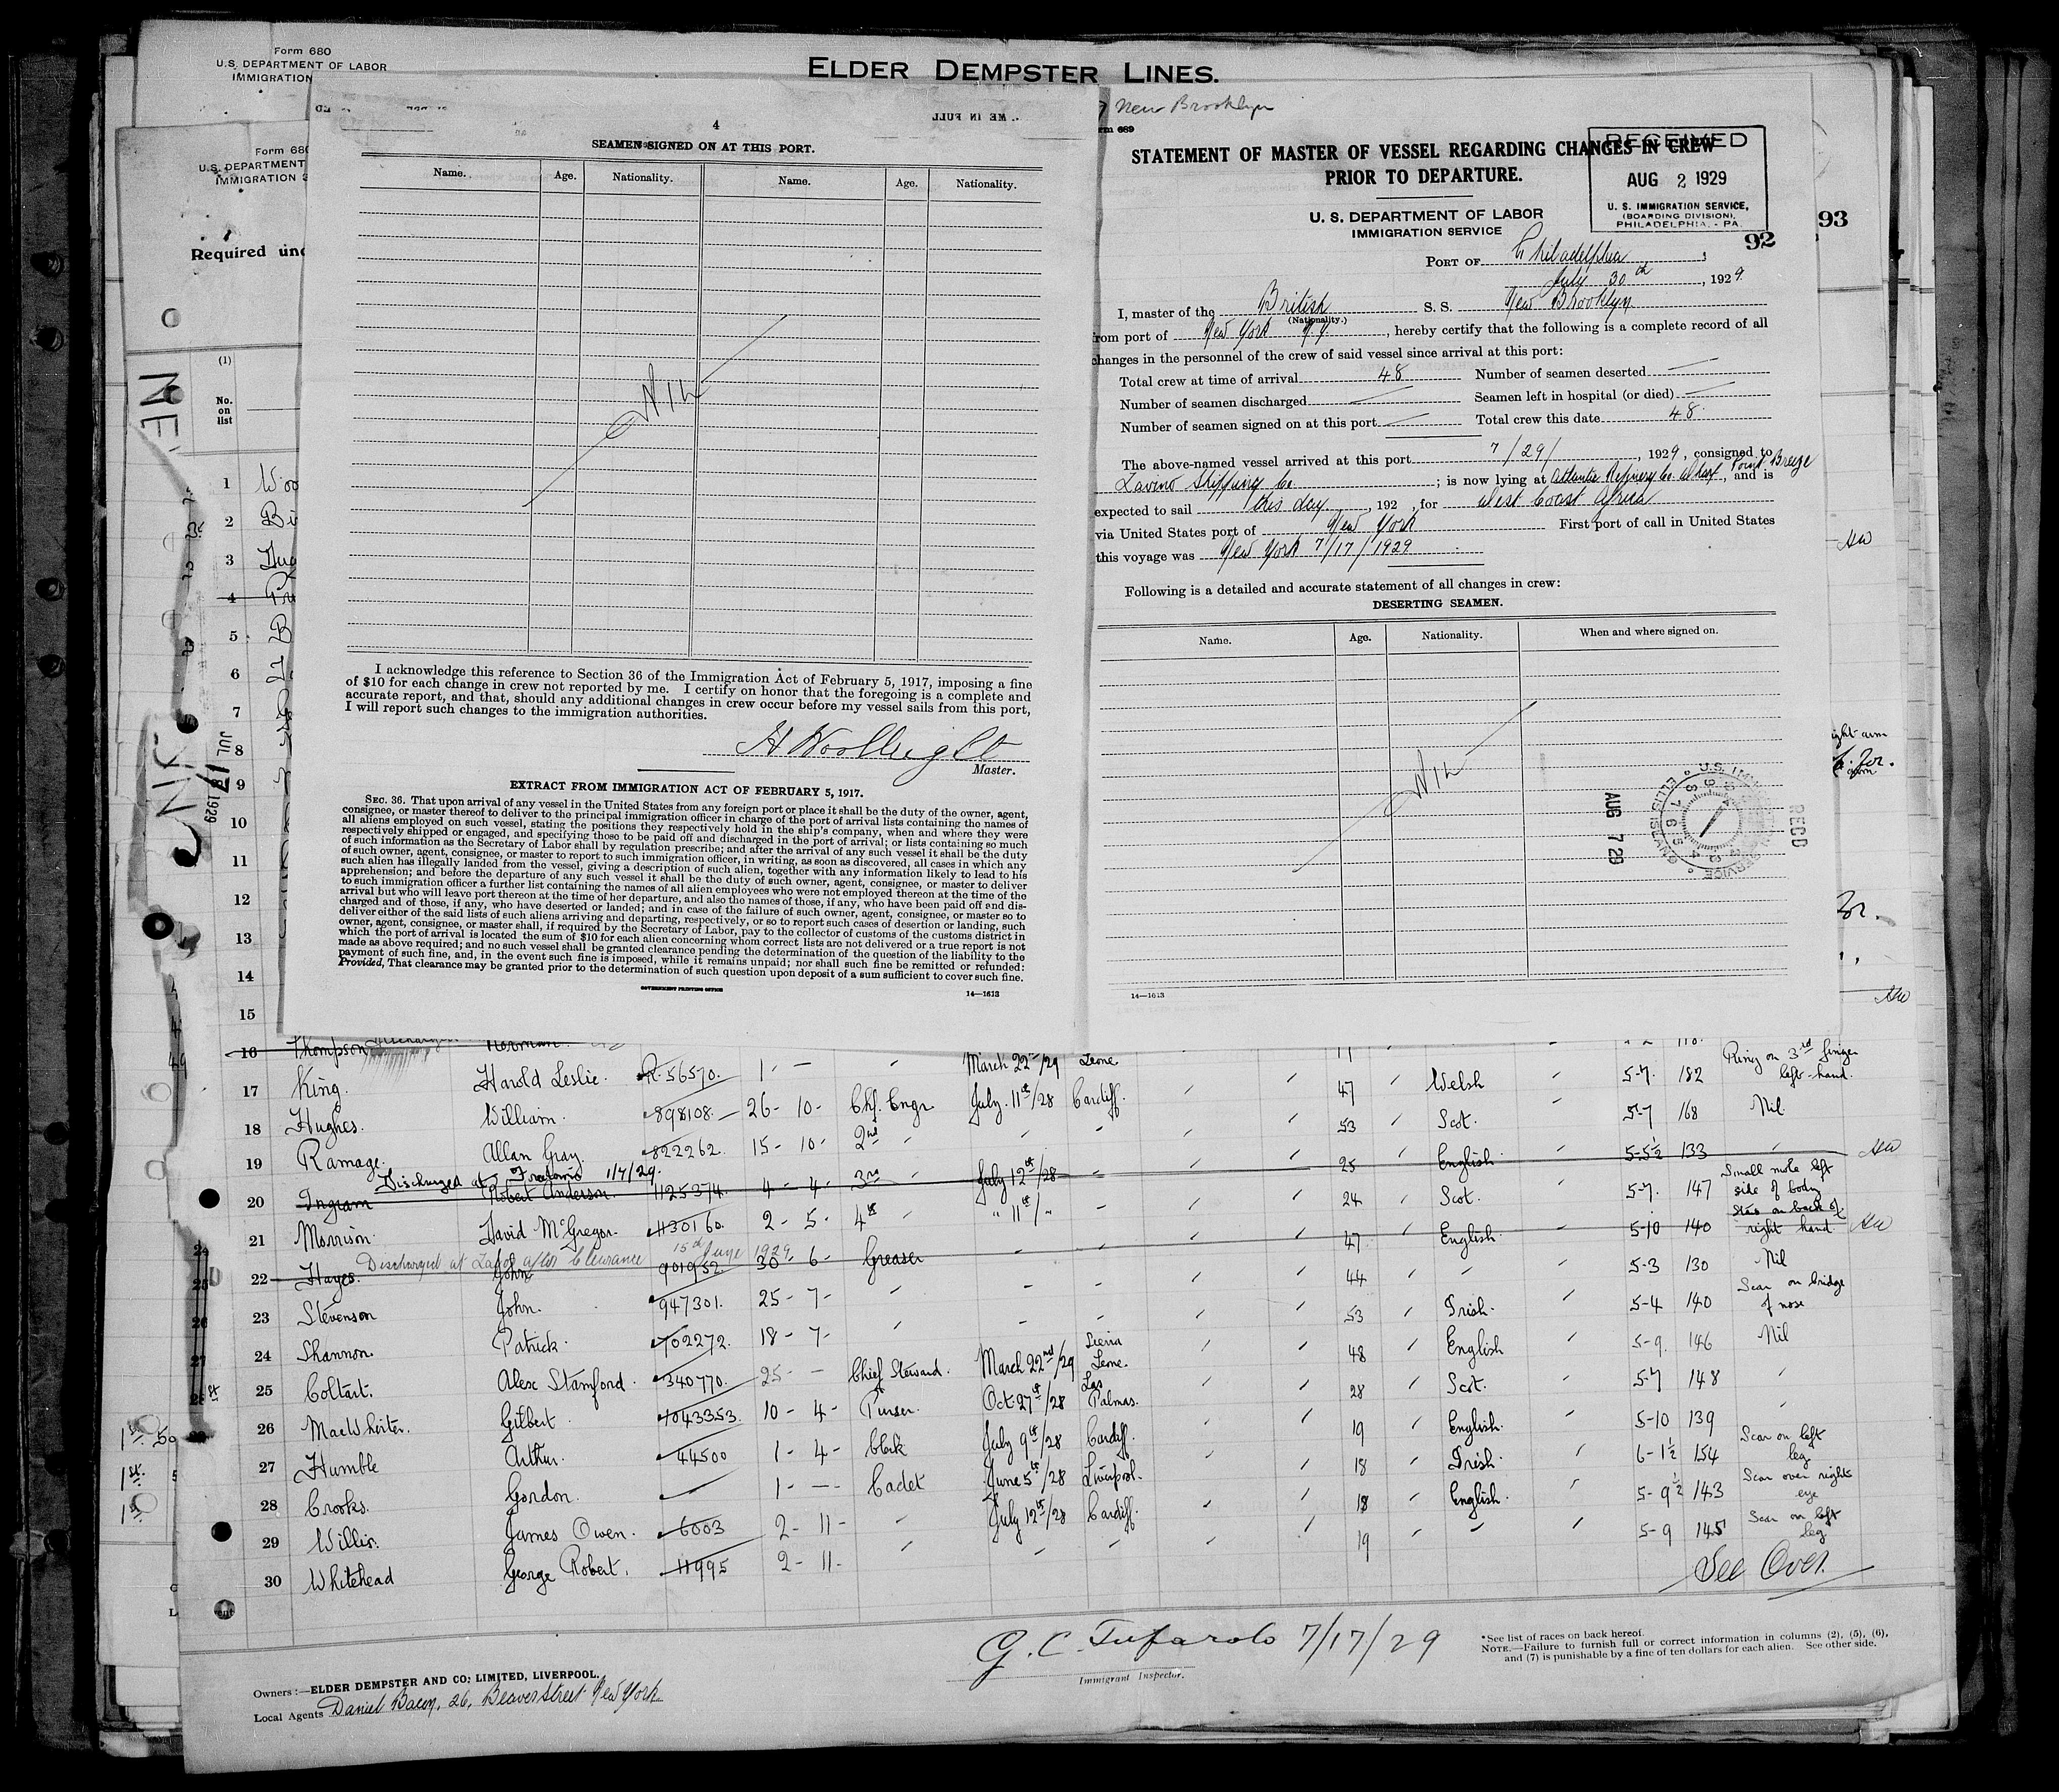 Form 680
U.S. DEPARTMENT OF LABOR
IMMIGRATION
ELDER DEMPSTER LINES.
Form 680
U.S. DEPARTMENT
IMMIGRATION
Required und
(1)
No.
on
list
4
SEAMEN SIGNED ON AT THIS PORT.
Name. Age. Nationality. Name. Age. Nationality.
Nil
I acknowledge this reference to Section 36 of the Immigration Act of February 5, 1917, imposing a fine
of $10 for each change in crew not reported by me. I certify on honor that the foregoing is a complete and
accurate report, and that, should any additional changes in crew occur before my vessel sails from this port,
I will report such changes to the immigration authorities.
Master.
EXTRACT FROM IMMIGRATION ACT OF FEBRUARY 5, 1917.
SEC. 36. That upon arrival of any vessel in the United States from any foreign port or place it shall be the duty of the owner, agent,
consignee, or master thereof to deliver to the principal immigration officer in charge of the port of arrival lists containing the names of
all aliens employed on such vessel, stating the positions they respectively hold in the ship's company, when and where they were
respectively shipped or engaged, and specifying those to be paid off and discharged in the port of arrival; or lists containing so much
of such information as the Secretary of Labor shall by regulation prescribe; and after the arrival of any such vessel it shall be the duty
of such owner, agent, consignee, or master to report to such immigration officer, in writing, as soon as discovered, all cases in which any
such alien has illegally landed from the vessel, giving a description of such alien, together with any information likely to lead to his
apprehension; and before the departure of any such vessel it shall be the duty of such owner, agent, consignee, or master to deliver
to such immigration officer a further list containing the names of all alien employees who were not employed thereon at the time of the
arrival but who will leave port thereon at the time of her departure, and also the names of those, if any, who have been paid off and dis-
charged and of those, if any, who have deserted or landed; and in case of the failure of such owner, agent, consignee, or master so to
deliver either of the said lists of such aliens arriving and departing, respectively, or so to report such cases of desertion or landing, such
owner, agent, consignee, or master shall, if required by the Secretary of Labor, pay to the collector of customs of the customs district in
which the port of arrival is located the sum of $10 for each alien concerning whom correct lists are not delivered or a true report is not
made as above required; and no such vessel shall be granted clearance pending the determination of the question of the liability to the
payment of such fine, and, in the event such fine is imposed, while it remains unpaid; nor shall such fine be remitted or refunded:
Provided, That clearance may be granted prior to the determination of such question upon deposit of a sum sufficient to cover such fine.
GOVERNMENT PRINTING OFFICE 14—1613
New Brooklyn
rm 689
STATEMENT OF MASTER OF VESSEL REGARDING CHANGES IN CREW
PRIOR TO DEPARTURE.
RECEIVED
AUG 2 1929
U. S. IMMIGRATION SERVICE,
(BOARDING DIVISION),
PHILADELPHIA. - PA
U. S. DEPARTMENT OF LABOR
IMMIGRATION SERVICE
92
93
PORT OF Philadelphia,
July 30th, 1929.
I, master of the British S. S. New Brooklyn
(Nationality.)
from port of New York N.Y., hereby certify that the following is a complete record of all
changes in the personnel of the crew of said vessel since arrival at this port:
Total crew at time of arrival 48 Number of seamen deserted —
Number of seamen discharged — Seamen left in hospital (or died) —
Number of seamen signed on at this port — Total crew this date 48.
The above-named vessel arrived at this port 7/29/, 1929, consigned to
Lavino Shipping Co.; is now lying at Atlantic Refinery Co. Wharf, Point Breeze, and is
expected to sail this day, 192 , for West Coast Africa
via United States port of New York First port of call in United States
this voyage was New York 7/17/1929
Following is a detailed and accurate statement of all changes in crew:
DESERTING SEAMEN.
Name. Age. Nationality. When and where signed on.
Nil
REC'D
AUG 7 29
14—1613
JUL 17 1929
1 Woo
2 Bi
3 Hug
4 Pr
5 B
6
7
8
9
10
11
12
13
14
15
16 Thompson Herman
March 22nd/29 Leone
17 King. Harold Leslie. R.56570. 1 - — 47 Welsh 5-7. 182 Ring on 3rd finger left-hand.
18 Hughes. William. 898108. 26- 10- Chf. Engr July 11th/28 Cardiff. 53 Scot. 5-7 168 Nil.
19 Ramage. Allan Gray. 822262. 15- 10- 2nd 25 English. 5-5½ 133
Discharged at 1/7/29.
20 Ingram Robert Anderson. 1125374. 4- 4- 3rd July 12th/28 24 Scot. 5-7. 147 Small mole left side of body
21 Morrison. David McGregor. 1130160. 2- 5- 4th " 11th/" 47 English. 5-10 140 Scar on back of right hand
Discharged at Lagos after Clearance 15th June 1929
22 Hayes. John 901952. 30- 6- Greaser 44 5-3 130 Nil
23 Stevenson John. 947301. 25- 7- 53 Irish. 5-4 140 Scar on bridge of nose
24 Shannon. Patrick. 702272. 18- 7- 48 English 5-9. 146 Nil
25 Coltart. Alex Stamford. 340770. 25- — Chief Steward. March 22nd/29 Sierra Leone. 28 Scot. 5-7 148
26 MacWhirter. Gilbert 1043353. 10- 4- Purser. Oct. 27th/28 Las Palmas. 19 English. 5-10 139
27 Humble Arthur. 44500 1- 4- Clerk July 9th/28 Cardiff. 18 Irish. 6-1½ 154 Scar on left leg
28 Crooks. Gordon. 1- — Cadet June 5th/28 Liverpool. 18 English. 5-9½ 143 Scar over right eye
29 Willis. James Owen. 6003 2- 11- July 12th/28 Cardiff. 19 5-9 145 Scar on left leg
30 Whitehead George Robert. 11995 2- 11-
See Over.
G. C. Tufarolo 7/17/29
Immigrant Inspector.
*See list of races on back hereof.
NOTE.—Failure to furnish full or correct information in columns (2), (5), (6),
and (7) is punishable by a fine of ten dollars for each alien. See other side.
Owners:—ELDER DEMPSTER AND CO; LIMITED, LIVERPOOL.
Local Agents Daniel Bacon, 26, Beaver Street New York